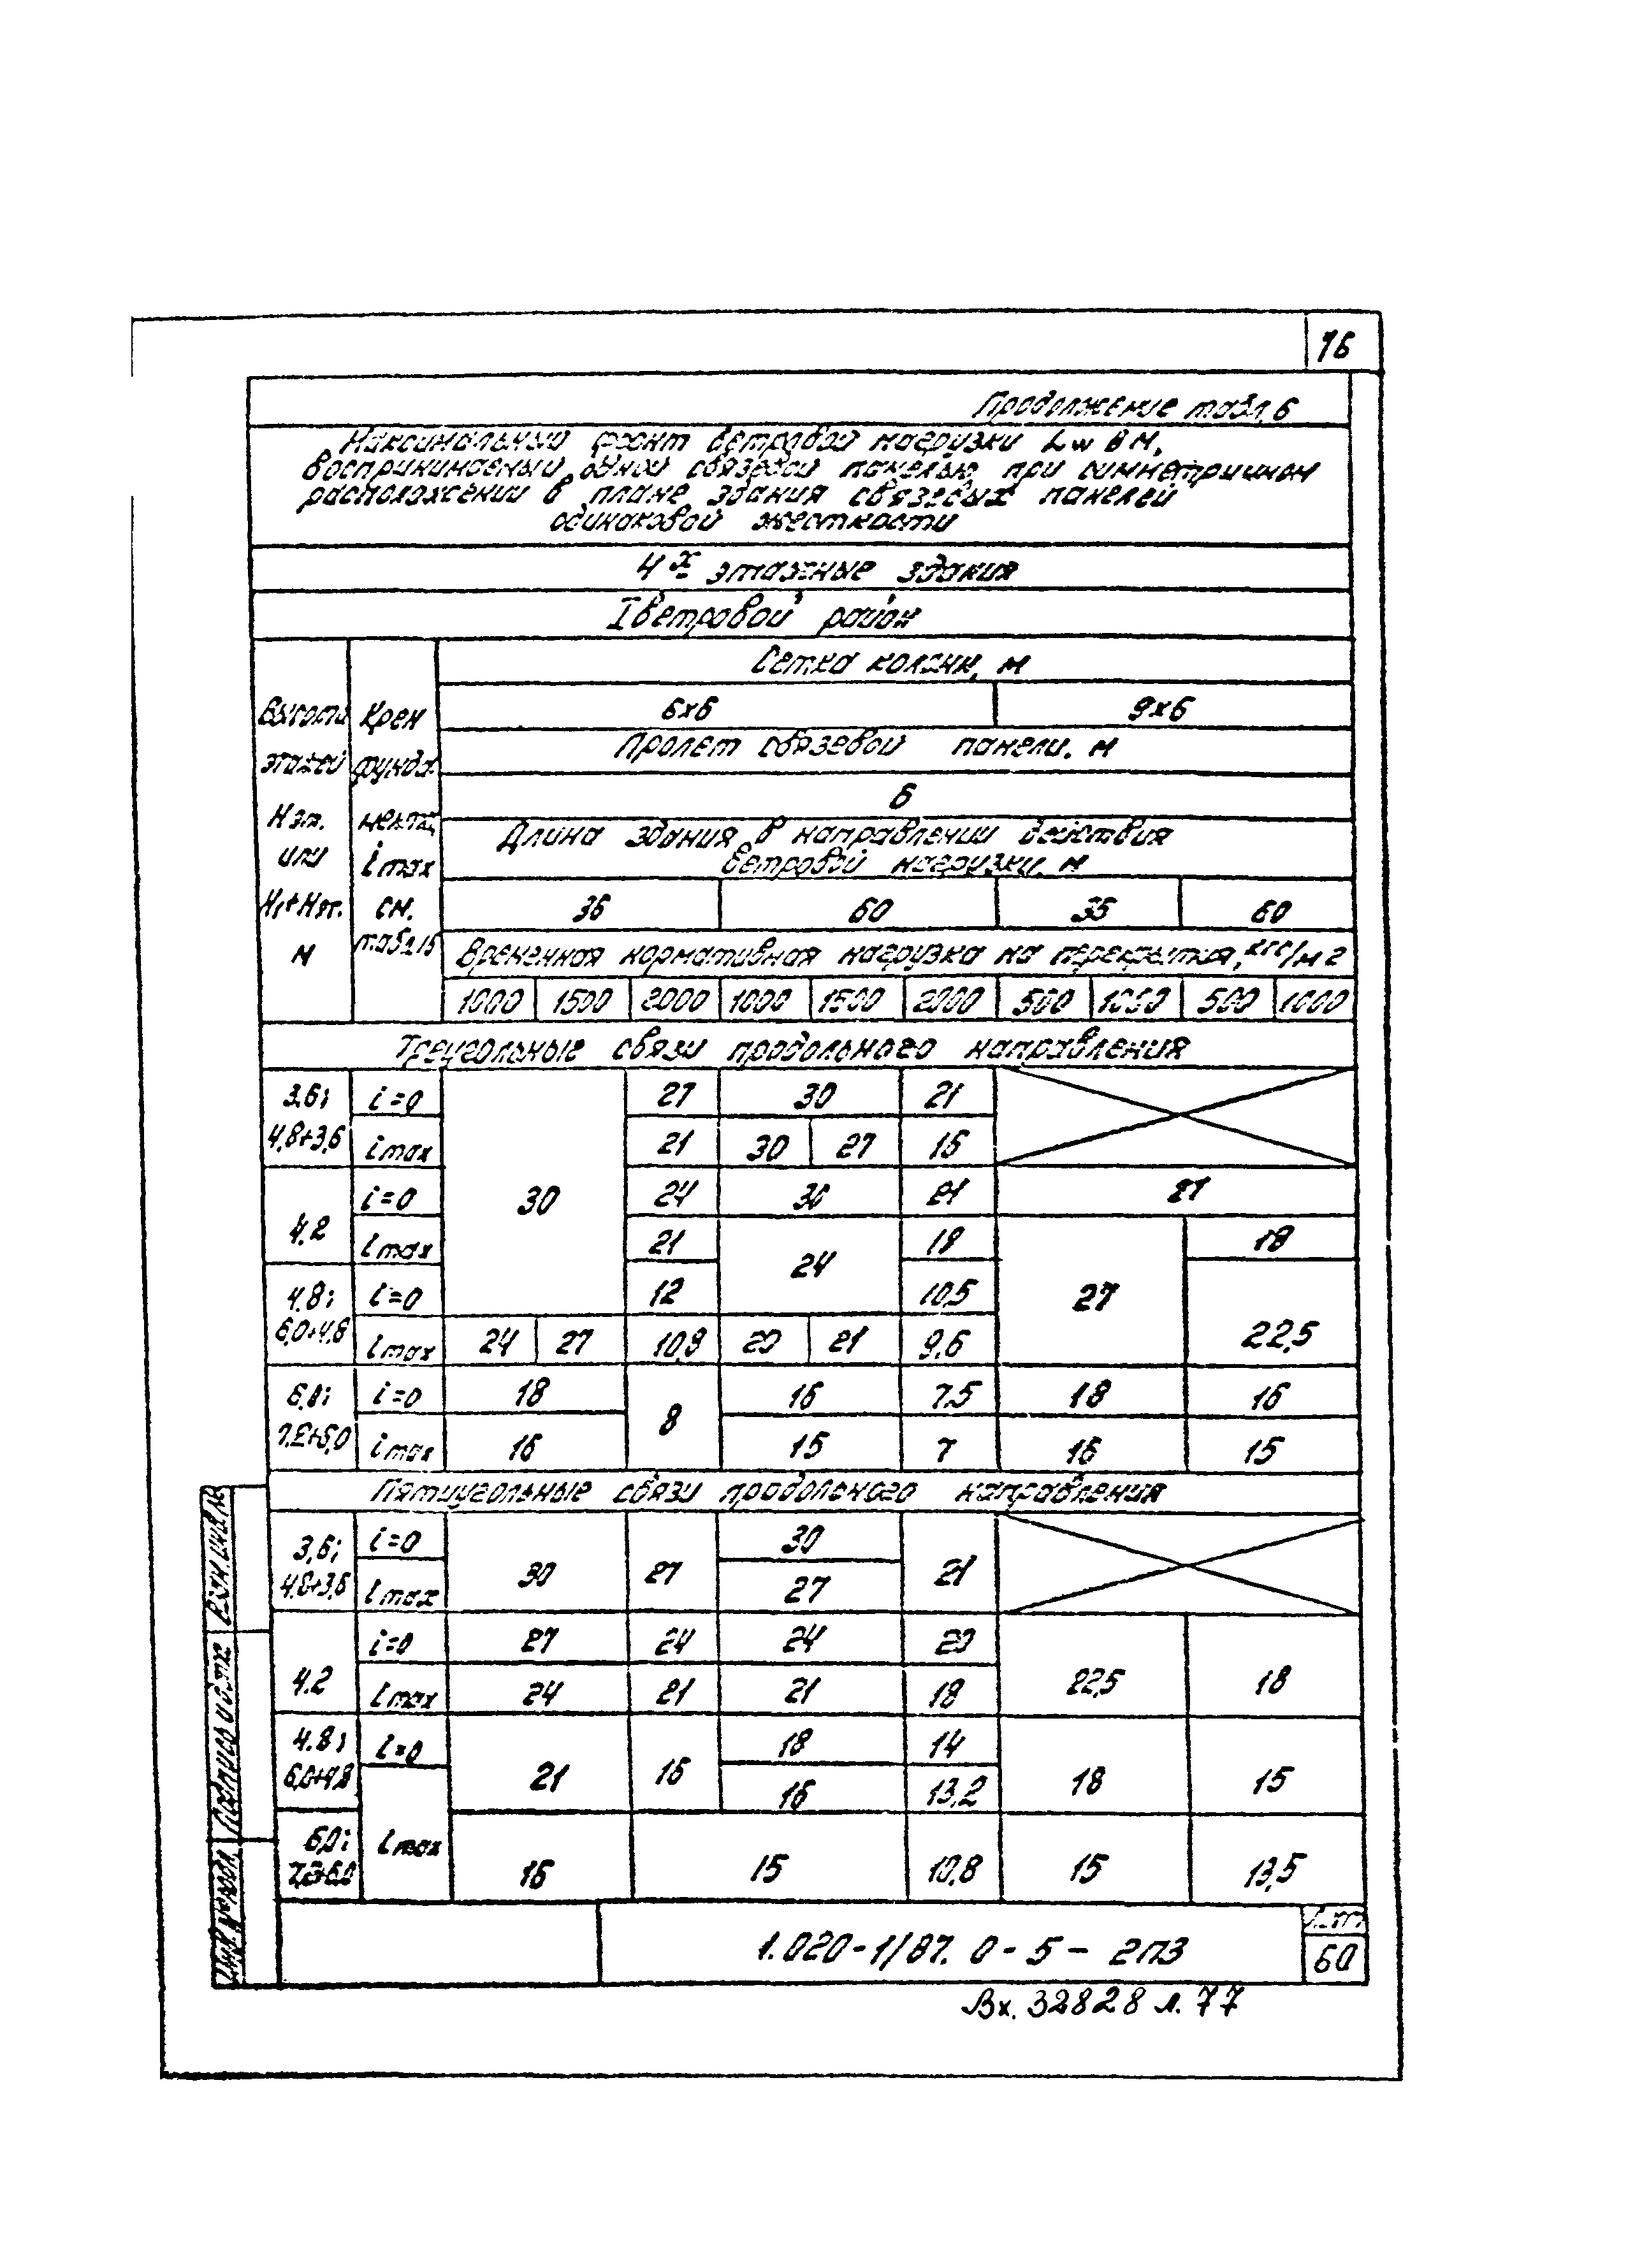 76
Продолжение табл. 6
Максимальный фронт ветровой нагрузки Lw в м,
воспринимаемый одной связевой панелью при симметричном
расположении в плане здания связевых панелей
одинаковой жесткости
4х этажные здания
I ветровой район
Сетка колонн, м
6х6 9х6
Высота этажей Нэт. или Н1+Нэт. м
Крен фунда- мента imax см. табл. 15
Пролет связевой панели, м
6
Длина здания в направлении действия
ветровой нагрузки, м
36 60 36 60
Временная нормативная нагрузка на перекрытия, кгс/м2
1000 1500 2000 1000 1500 2000 500 1000 500 1000
Треугольные связи продольного направления
3.6; i=0 27 30 21
4,8+3,6 imax 21 30 27 15
30
4.2 i=0 24 30 21 21
imax 21 24 18 27 18
4.8; i=0 12 10,5
6,0+4,8 imax 24 27 10,8 20 21 9,6 22,5
6,0; i=0 18 8 16 7.5 18 16
7,2+6,0 imax 16 15 7 16 15
Пятиугольные связи продольного направления
3,6; i=0 30 27 30 21
4,8+3,6 imax 27
4.2 i=0 27 24 24 20 22,5 18
imax 24 21 21 18
4.8; i=0 21 16 18 14 18 15
6,0+4,8 16 13,2
6,0; imax 16 15 10,8 15 13,5
7,2+6,0
Инв.№ подл. Подпись и дата Взам.инв.№
1.020-1/87. 0-5- 2ПЗ
Лист
60
Вх. 32828 л. 77